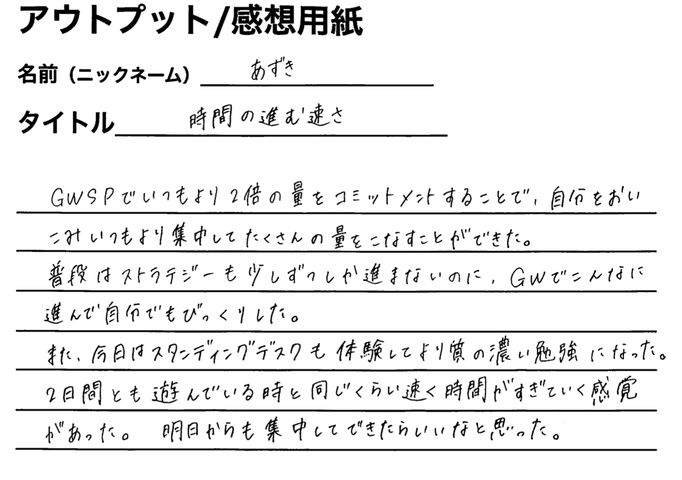 アウトプット/感想用紙
名前（ニックネーム） あずき
タイトル 時間の進む速さ
GWSPでいつもより2倍の量をコミットメントすることで、自分をおい
こみいつもより集中してたくさんの量をこなすことができた。
普段はストラテジーも少しずつしか進まないのに、GWでこんなに
進んで自分でもびっくりした。
また、今日はスタンディングデスクも体験してより質の濃い勉強になった。
2日間とも遊んでいる時と同じくらい速く時間がすぎていく感覚
があった。 明日からも集中してできたらいいなと思った。